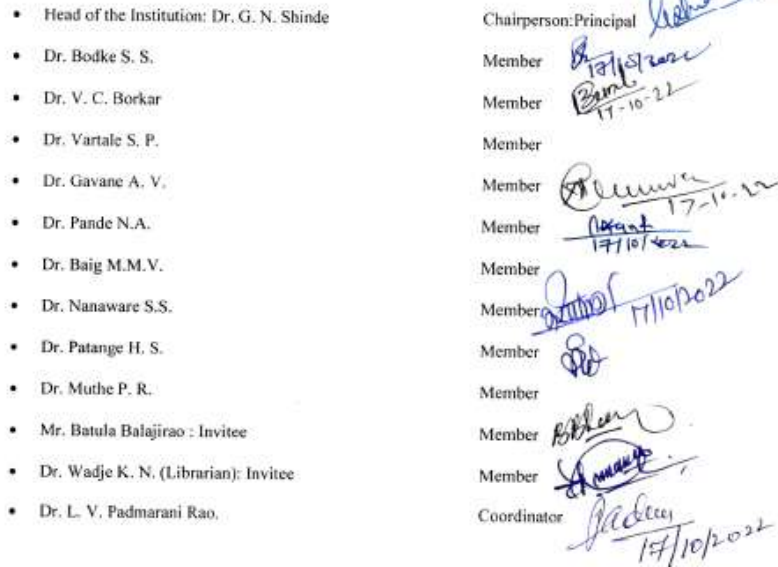 • Head of the Institution: Dr. G. N. Shinde Chairperson:Principal
• Dr. Bodke S. S. Member
• Dr. V. C. Borkar Member 17-10-22
• Dr. Vartale S. P. Member
• Dr. Gavane A. V. Member 17-10-22
• Dr. Pande N.A. Member 17/10/2022
• Dr. Baig M.M.V. Member
• Dr. Nanaware S.S. Member 17/10/2022
• Dr. Patange H. S. Member
• Dr. Muthe P. R. Member
• Mr. Batula Balajirao : Invitee Member
• Dr. Wadje K. N. (Librarian): Invitee Member
• Dr. L. V. Padmarani Rao. Coordinator 17/10/2022